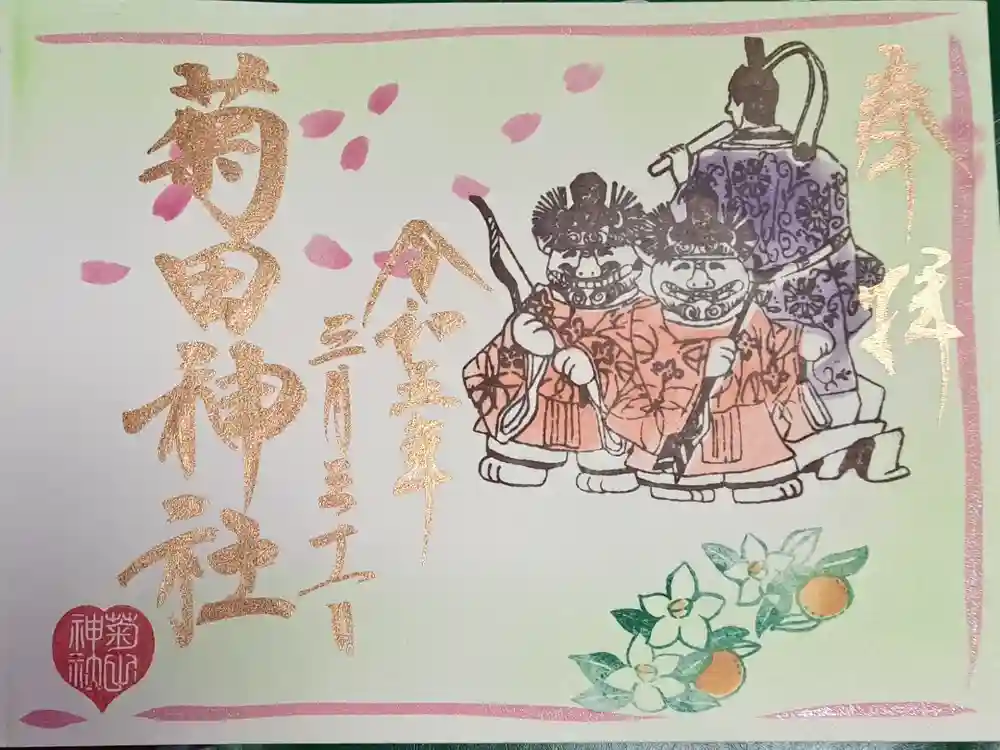 奉拝
令和五年
三月三十一日
菊田神社
菊田神社